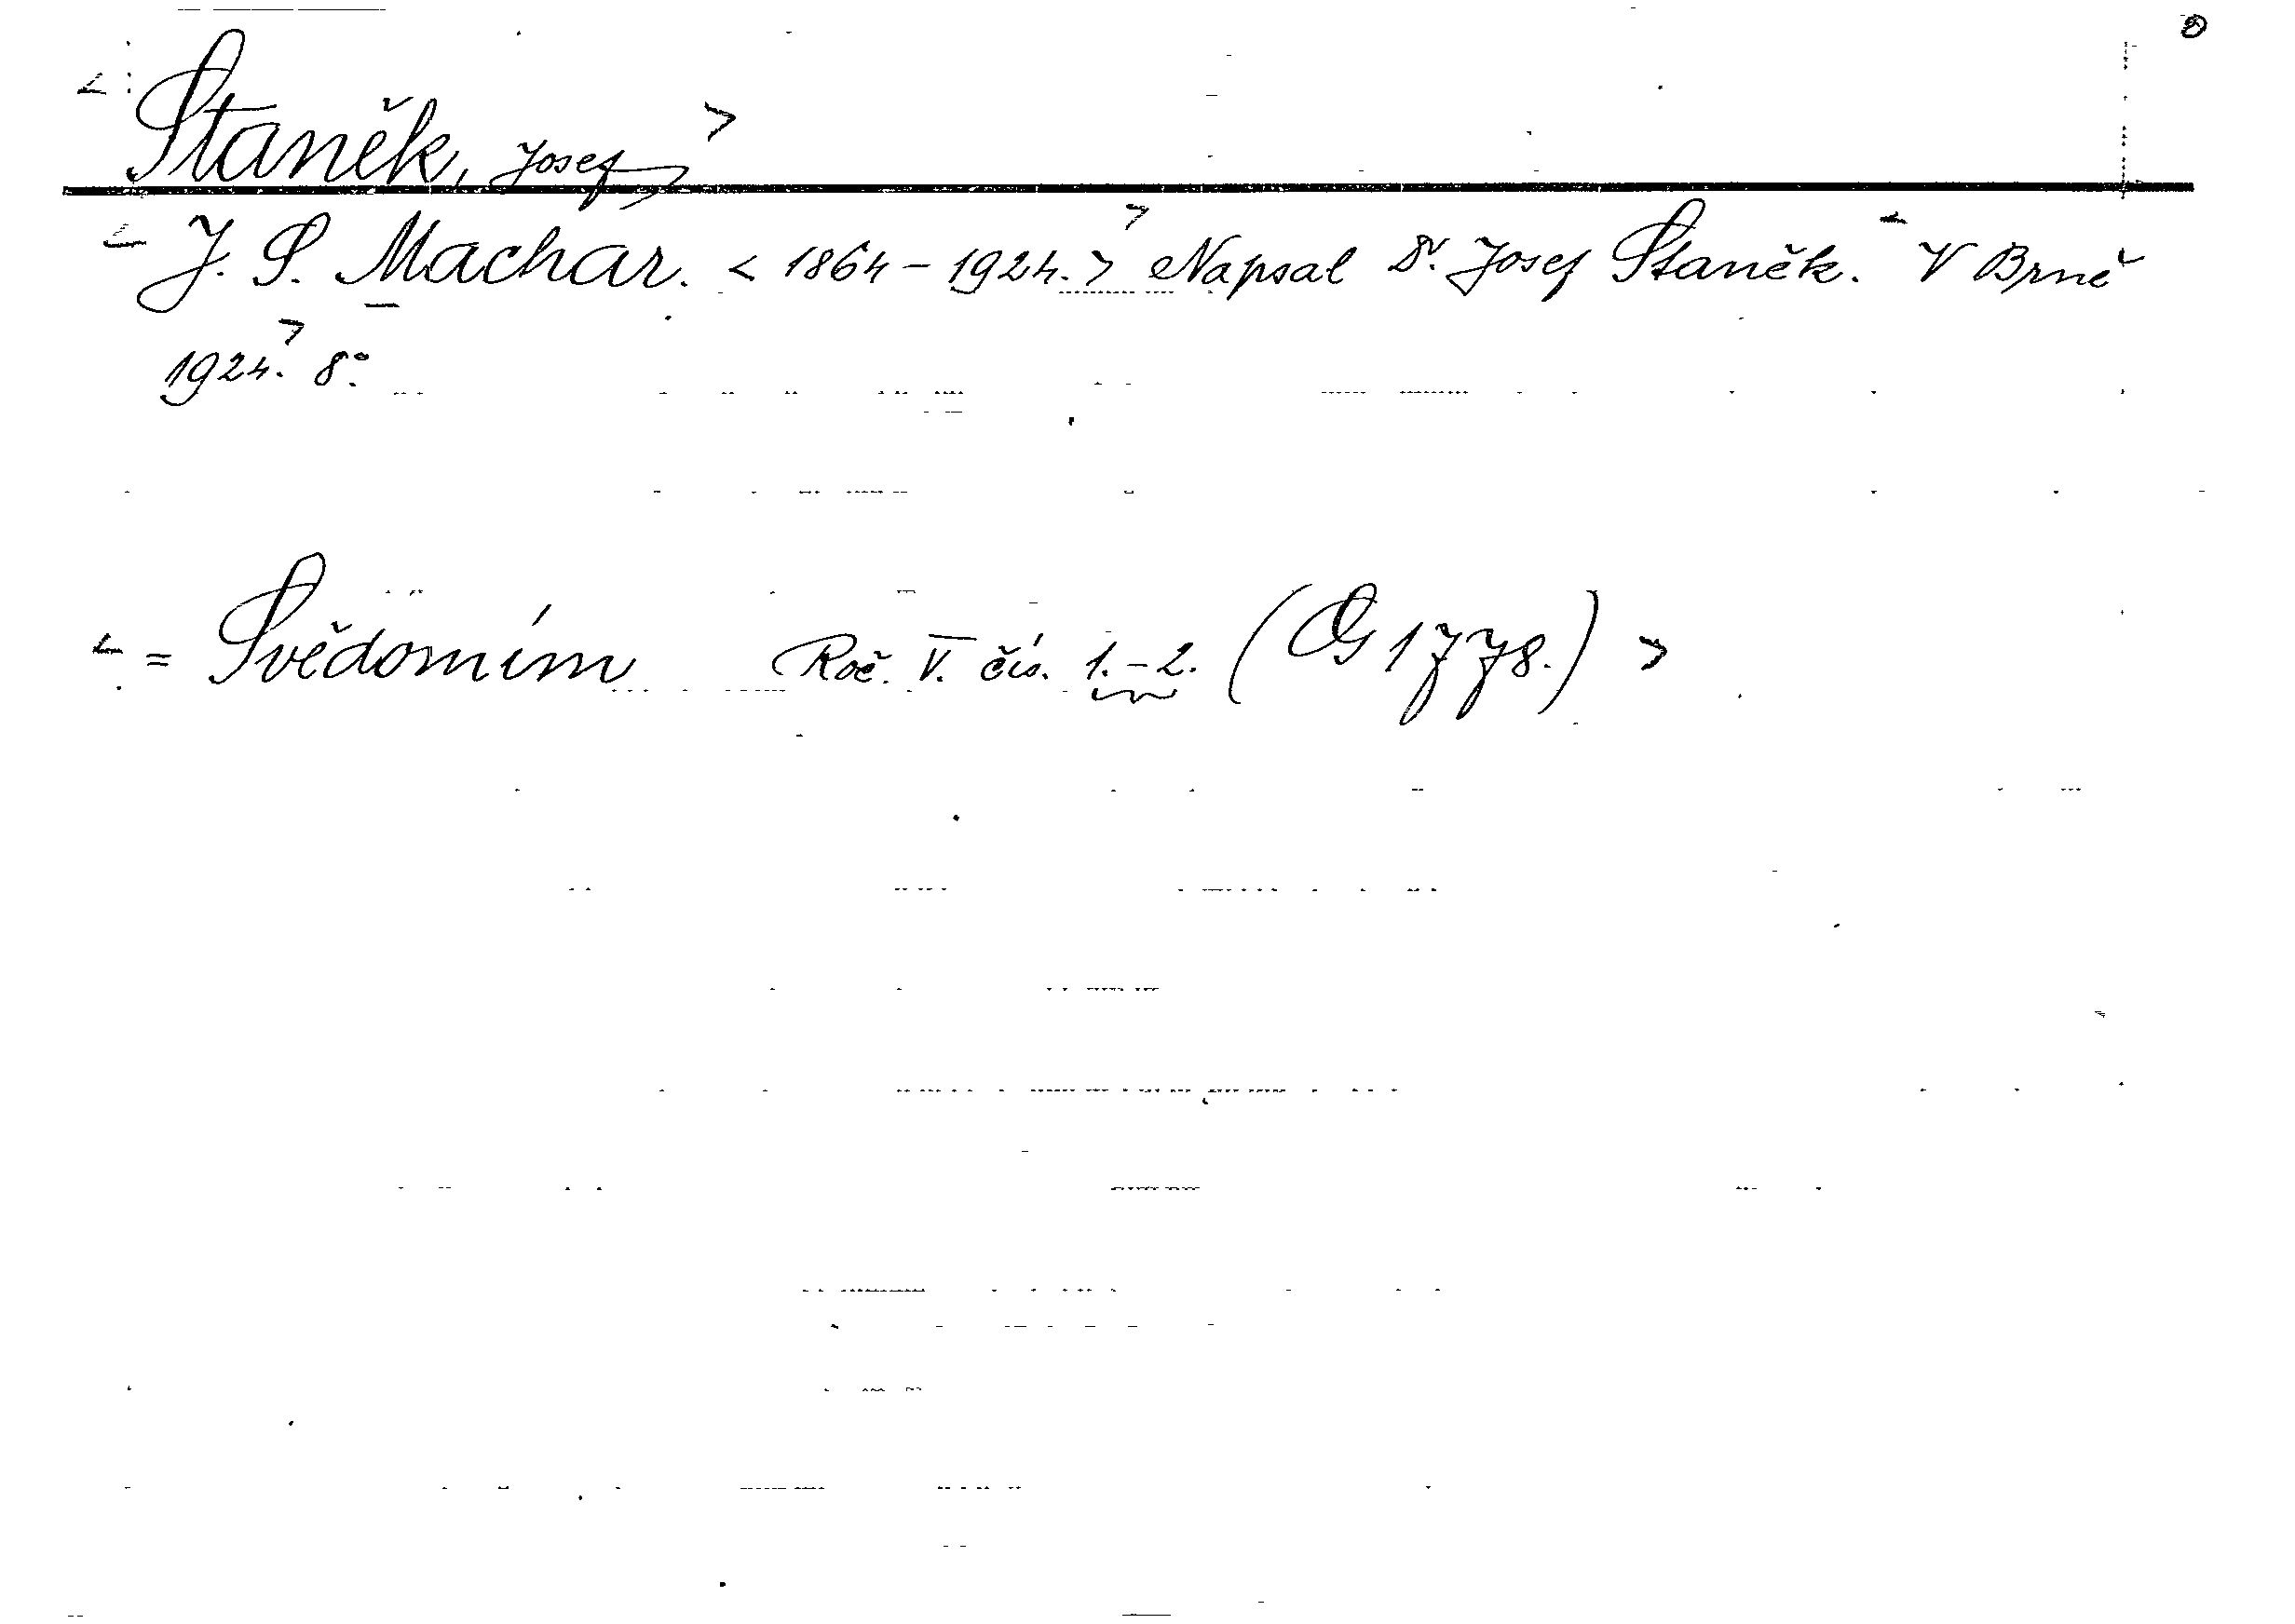 < Staněk, Josef >
< J. S. Machar. < 1864 – 1924. > Napsal Dr. Josef Staněk. < V Brně
1924. > 8°.
< = Svědomím Roč. V. čís. 1.–2. (Og 1778.) >